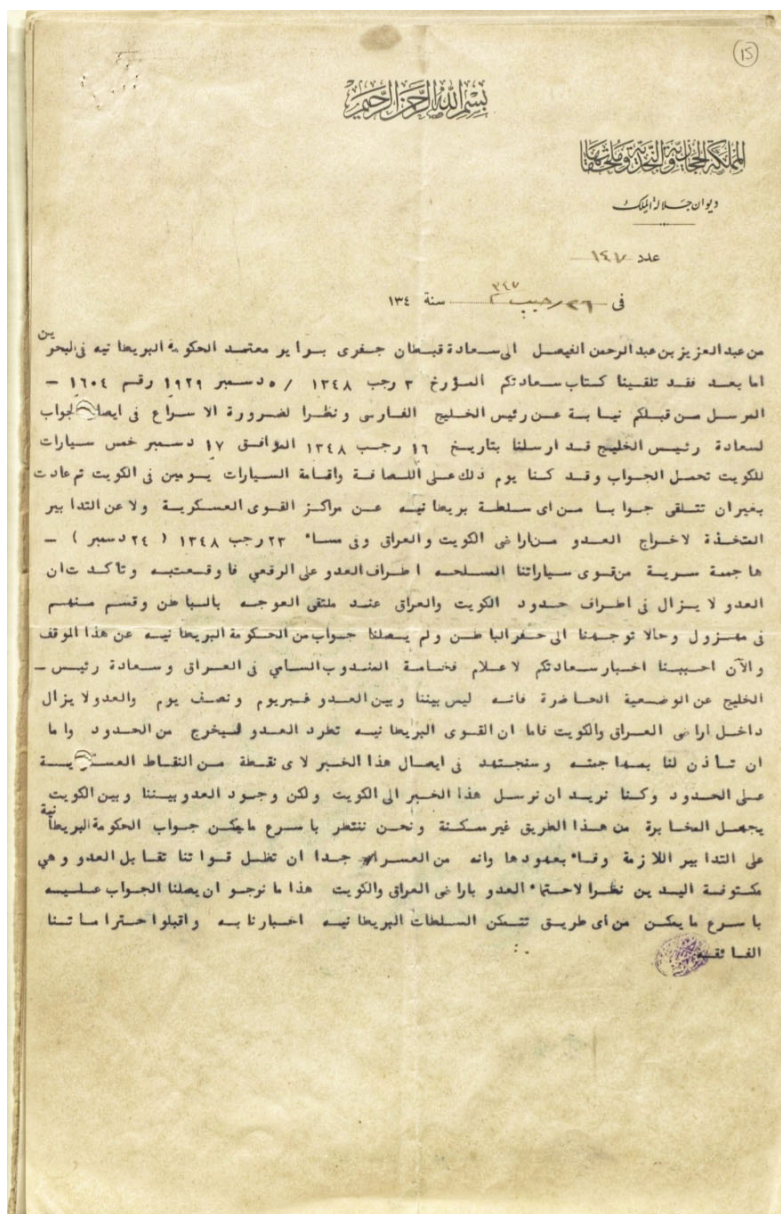 ١٥
بسم الله الرحمن الرحيم
المملكة الحجازية والنجدية وملحقاتها
ديوان جلالة الملك
عدد ١٤٧
فى ٢٦ رجب سنة ١٣٤
من عبد العزيز بن عبد الرحمن الفيصل الى سعادة قبطان جفرى برايو معتمد الحكومة البريطانيه فى البحرين
اما بعد فقد تلقينا كتاب سعادتكم المؤرخ ٣ رجب ١٣٤٨ / ٥ دسمبر ١٩٢٩ رقم ١٦٠٤ –
المرسل من قبلكم نيابة عن رئيس الخليج الفارسى ونظرا لضرورة الاسراع فى ايصال الجواب
لسعادة رئيس الخليج قد ارسلنا بتاريخ ١٦ رجب ١٣٤٨ الموافق ١٧ دسمبر خمس سيارات
للكويت تحمل الجواب وقد كنا يوم ذلك على اللصافة واقامة السيارات يومين فى الكويت ثم عادت
بغير ان تتلقى جوابا من اى سلطة بريطانيه عن مراكز القوى العسكرية ولا عن التدابير
المتخذة لاخراج العدو من اراضى الكويت والعراق وفى مساء ٢٣ رجب ١٣٤٨ ( ٢٤ دسمبر ) –
هاجمة سرية من قوى سياراتنا المسلحه اطراف العدو على الرقعي فاوقعت به وتاكدت ان
العدو لا يزال فى اطراف حدود الكويت والعراق عند ملتقى العوجه بالباطن وقسم منهم
فى مهزول وحالا توجهنا الى حفر الباطن ولم يصلنا جواب من الحكومة البريطانيه عن هذا الموقف
والآن احببنا اخبار سعادتكم لاعلام فخامة المندوب السامي فى العراق وسعادة رئيس –
الخليج عن الوضعية الحاضرة فانه ليس بيننا وبين العدو غير يوم ونصف يوم والعدو لا يزال
داخل اراضى العراق والكويت فاما ان القوى البريطانيه تطرد العدو فيخرج من الحدود واما
ان تاذن لنا بمهاجمته وسنجتهد فى ايصال هذا الخبر لاى نقطة من النقاط العسكرية
على الحدود وكنا نريد ان نرسل هذا الخبر الى الكويت ولكن وجود العدو بيننا وبين الكويت
يجعل المخابرة من هذا الطريق غير ممكنة ونحن ننتظر باسرع مايمكن جواب الحكومة البريطانية
على التدابير اللازمة وفاء بعهودها وانه من العسر جدا ان تظل قواتنا تقابل العدو وهي
مكتوفة اليدين نظرا لاحتماء العدو باراضى العراق والكويت هذا ما نرجو ان يصلنا الجواب عليه
باسرع ما يمكن من اى طريق تتمكن السلطات البريطانيه اخبارنا به واقبلوا احتراماتنا
الفائقه